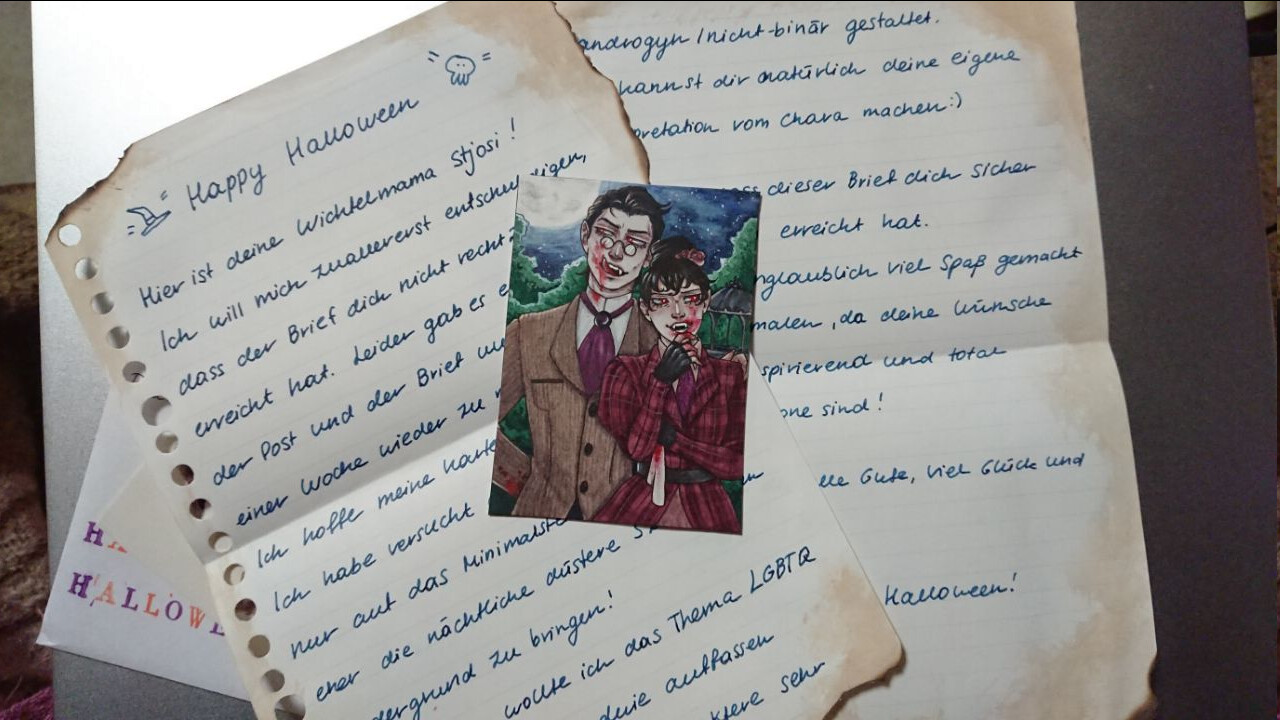 Happy Halloween
Hier ist deine Wichtelmama Stjosi!
Ich will mich zuallererst entschuldigen,
dass der Brief dich nicht recht-
erreicht hat. Leider gab es
der Post und der Brief
einer Woche wieder zu
Ich hoffe meine Karte
Ich habe versucht
nur auf das Minimalste
eher die nächtliche düstere
dergrund zu bringen!
wollte ich das Thema LGBTQ
auffassen
sehr
androgyn / nicht-binär gestaltet.
kannst dir natürlich deine eigene
pretation vom Chara machen :)
dieser Brief dich sicher
erreicht hat.
nglaublich viel Spaß gemacht
malen, da deine Wünsche
spirierend und total
one sind!
lle Gute, viel Glück und
Halloween!
HALLOWE